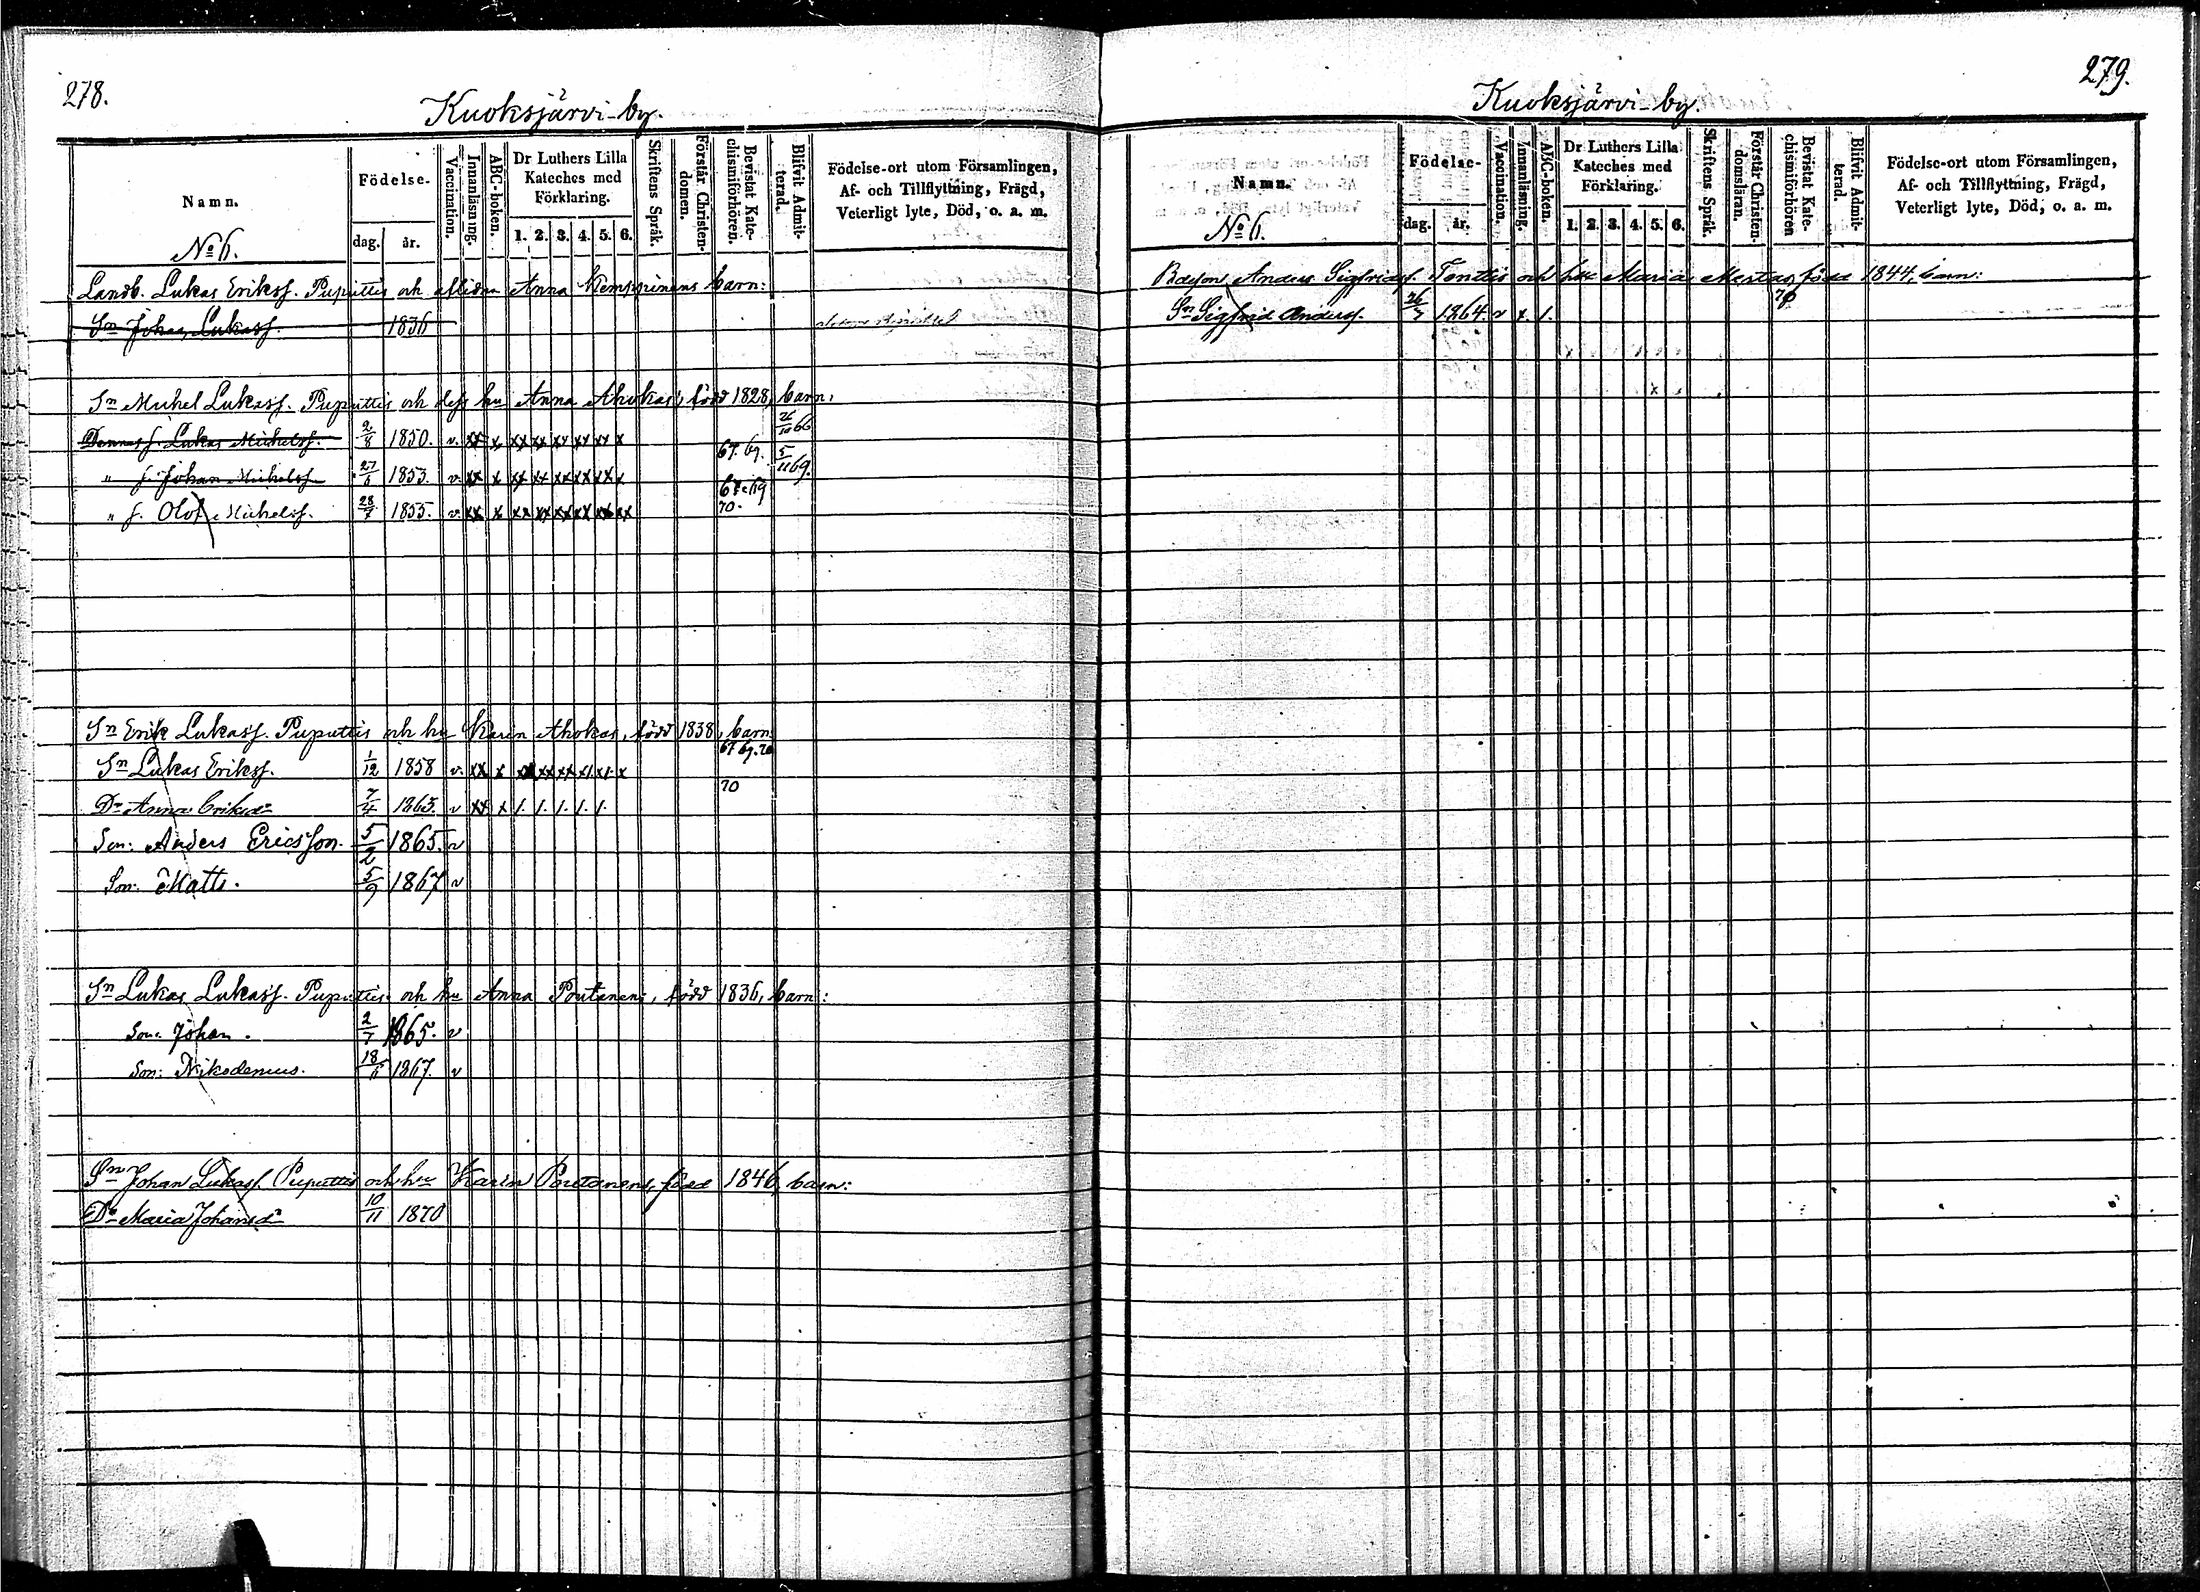 278.
Kuoksjärvi-by.
Namn.
Födelse-
dag. år.
Vaccination.
Innanläsning.
ABC-boken.
Dr Luthers Lilla
Kateches med
Förklaring.
1. 2. 3. 4. 5. 6.
Skriftens Språk.
Förstår Christen-
domen.
Bevistat Kate-
chismiförhören.
Blifvit Admit-
terad.
Födelse-ort utom Församlingen,
Af- och Tillflyttning, Frägd,
Veterligt lyte, Död, o. a. m.
No 6.
Landb. Lukas Erikss. Puputtis och aflidna Anna Kemppinens barn:
Sn Johan Lukass. 1836
Sn Michel Lukass. Puputtis och dess hu Anna Ahokas, född 1828, barn:
Dennes s. Lukas Michelss. 2/8 1850. v. xx x xx xx xx xx xx x 67. 69. 26/10 66
" s. Johan Michelss. 27/6 1853. v. xx x xx xx xx xx xx x 67. 69 5/11 69.
" s. Olof Michelss. 28/7 1855. v. xx x xx xx xx xx xx xx 70.
Sn Erik Lukass. Puputtis och hu Karin Ahokas, född 1838, barn:
Sn Lukas Erikss. 1/12 1858 v. xx x xx xx xx x/. x/. x 67. 69. 70
Dr Anna Eriksdr 7/4 1863. v xx x /. /. /. /. /. 70
Son: Anders Ericsson. 5/2 1865. v
Son: Matts. 5/9 1867 v
Sn Lukas Lukass. Puputtis och hu Anna Poutanens, född 1836, barn:
Son: Johan. 2/7 1865. v
Son: Nikodemus. 18/6 1867. v
Sn Johan Lukass. Puputtis och hu Karin Poutanens, född 1846, barn:
Dr Maria Johansdr 10/11 1870
279.
Kuoksjärvi-by.
Namn.
Födelse-
dag. år.
Vaccination.
Innanläsning.
ABC-boken.
Dr Luthers Lilla
Kateches med
Förklaring.
1. 2. 3. 4. 5. 6.
Skriftens Språk.
Förstår Christen-
domsläran.
Bevistat Kate-
chismiförhören
Blifvit Admit-
terad.
Födelse-ort utom Församlingen,
Af- och Tillflyttning, Frägd,
Veterligt lyte, Död, o. a. m.
No 6.
Anders Sigfridss. Tonttis och hu Maria född 1844, barn:
Sn Sigfrid Anderss. 26/7 1864. v x. /. 70